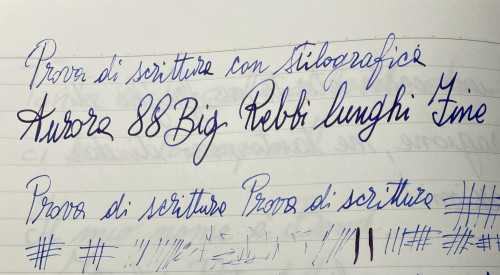 Prova di scrittura con stilografica
Aurora 88 Big Rebbi lunghi Fine
Prova di scrittura Prova di scrittura